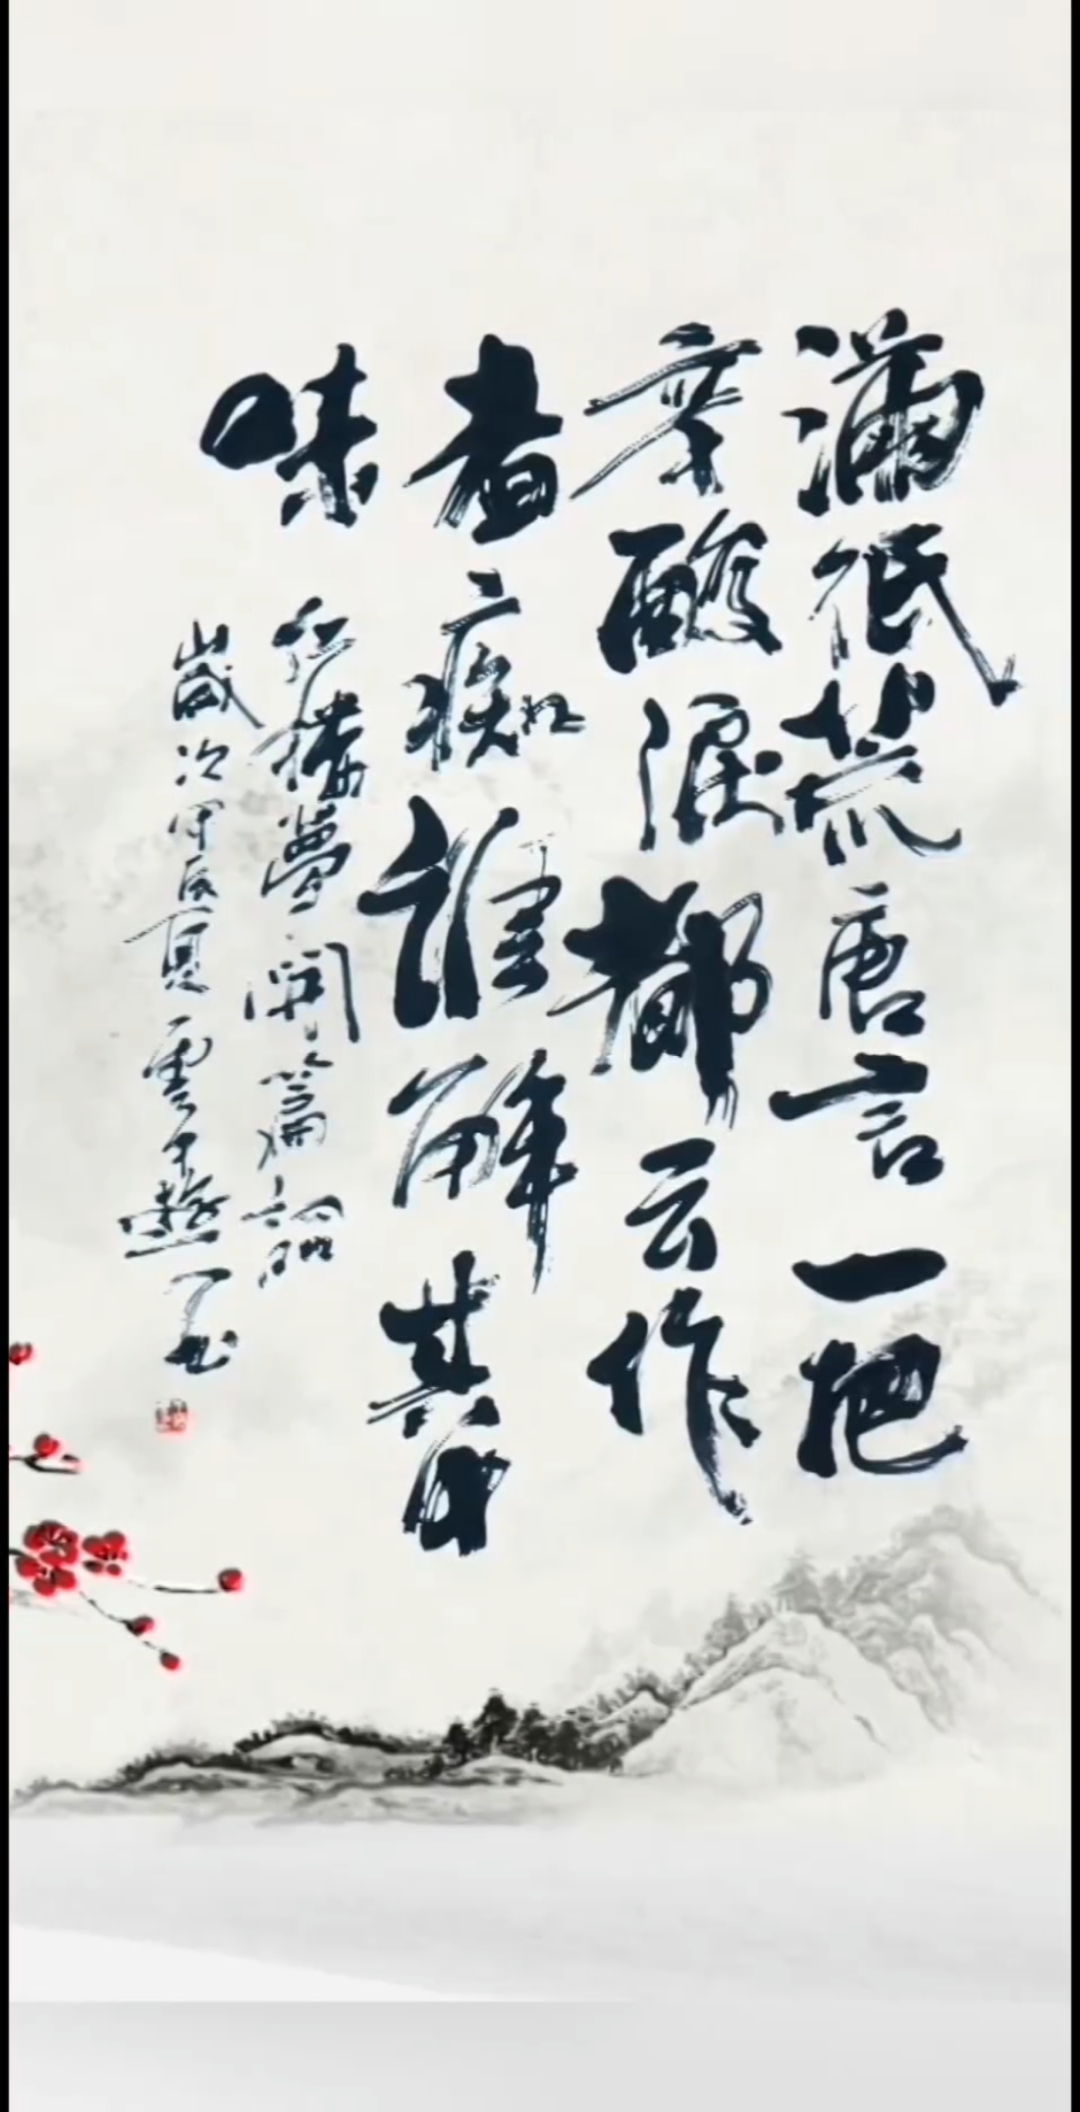 滿纸荒唐言一把
辛酸淚都云作
者痴誰解其中
味
红樓夢開篇詞
歲次甲辰夏雲